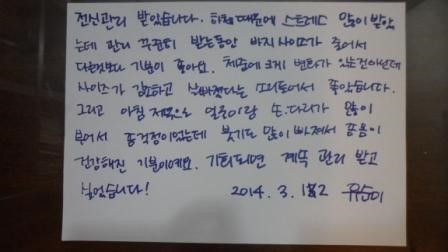 전신관리 받았습니다. 하체 때문에 스트레스 많이 받았
는데 관리 꾸준히 받는동안 바지 사이즈가 줄어서
다른것보다 기분이 좋아요. 체중에 크게 변화가 있는건아닌데
사이즈가 감소하고 살빠졌다는 소리들어서 좋았습니다.
그리고 아침 저녁으로 얼굴이랑 손.다리가 많이
부어서 좀 걱정이었는데 붓기도 많이 빠져서 몸이
건강해진 기분이에요. 기회되면 계속 관리 받고
싶었습니다!
2014. 3. 12